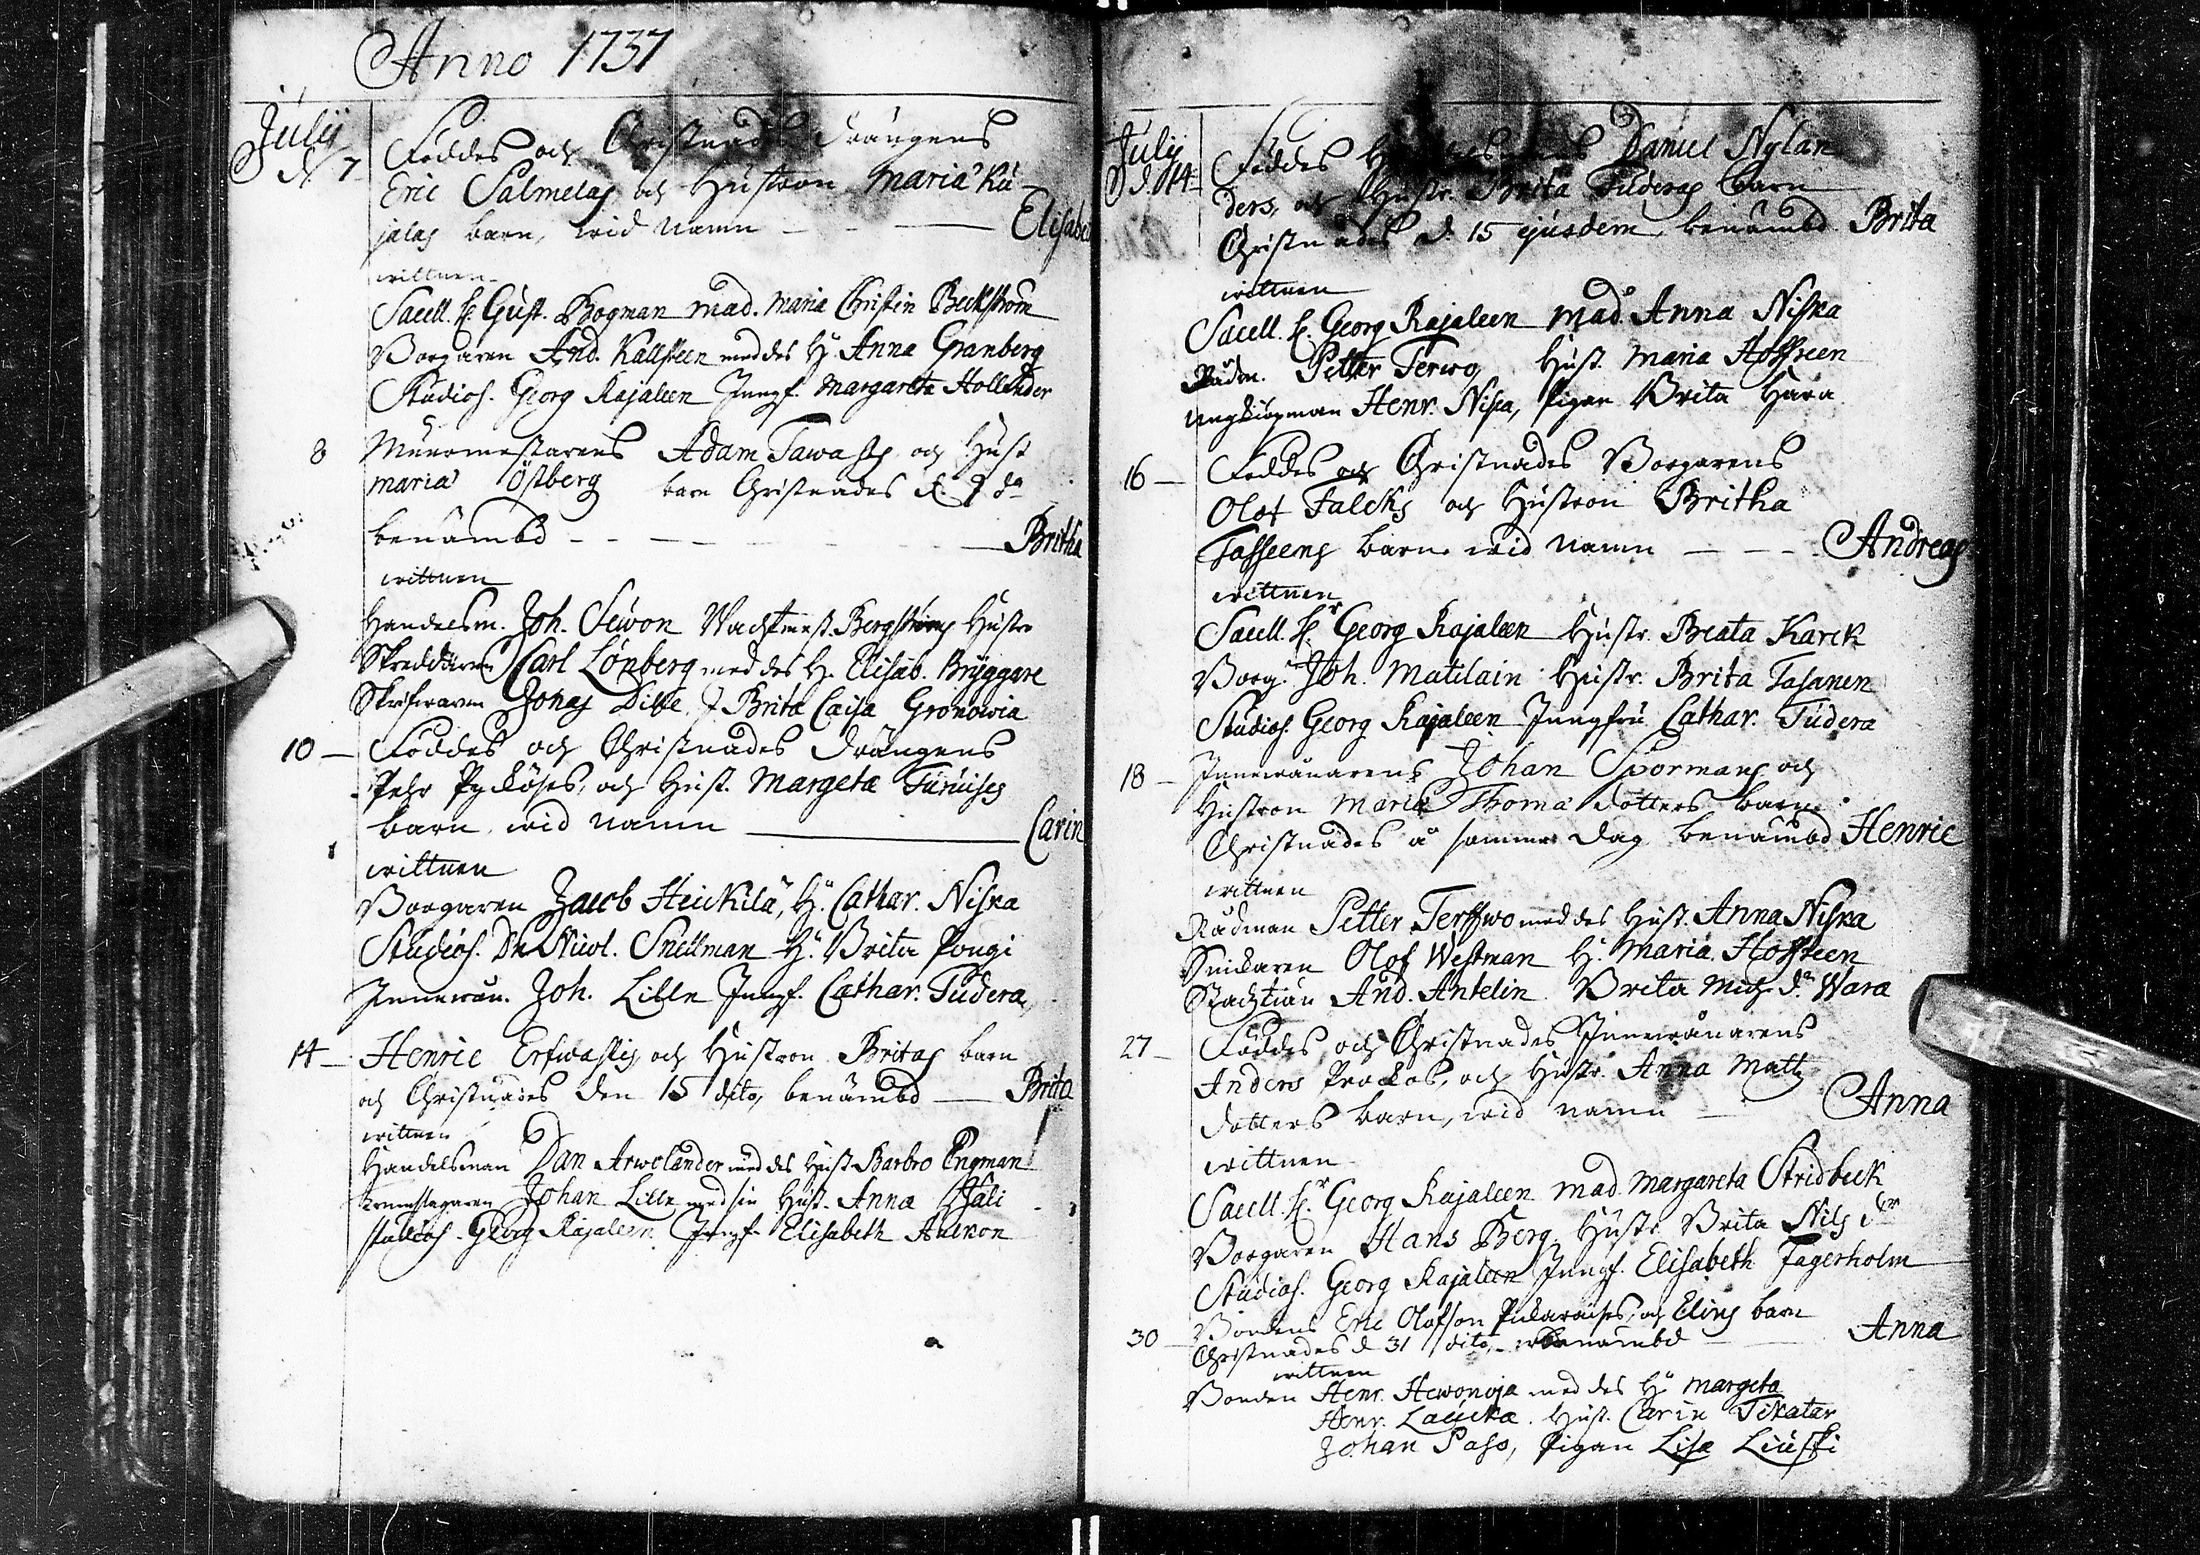 Anno 1737
Julij
d. 7
Föddes och Christnades Drängens
Eric Salmelas och Hustron Maria Ku-
jalas barn, wid namn - - - Elisabet
wittnen
Sacell. H. Gust. Bogman Mad. Maria Christin Beckström
Borgaren And. Kallsteen med des H. Anna Granberg
Studios. Georg Kajaleen Jungf. Margareta Hollender
8 Muurmestarens Adam Tawasts och Hust
Maria Östberg barn Christnades d. 9 do
benämbd - - - - - - Britha
wittnen
Handelsm. Joh. Sewon Wachtmest. Bergströms Hustr
Skreddaren Carl Lönberg med des H. Elisab. Bryggare
Skrifwaren Jonas Dille J. Brita Caisa Gronowia
10 Föddes och Christnades Drängens
Pehr Pyköses, och Hust. Margeta Turuises
barn, wid namn Carin
wittnen
Borgaren Jacob Heickilä, H. Cathar. Niska
Studios. Dn Nicol. Snellman H. Brita Pougi
Innewån. Joh. Lille Jungf. Cathar. Tudera
14 Henric Erfwastis och Hustron Britas barn
och Christnades den 15 dito, benämbd Brita
wittnen
Handelsman Dan Arwolander med des Hust Barbro Engman
Trumslagaren Johan Lille med sin Hust. Anna Hali
studios. Georg Kajaleen Jungf. Elisabeth Aulnon
Julij
d. 14
Föddes Daniel Nylan
ders, och Hustr. Brita Tuderas barn
Christnades d. 15 ejusdem, benämbd Brita
wittnen
Sacell. H. Georg Kajaleen Mad Anna Niska
Rådm. Petter Terwo, Hust. Maria Hoffreen
ungkiöpman Henr. Nisca, Pigan Brita Hara
16 Föddes och Christnades Borgarens
Olof Falcks och Hustron Britha
Tasseens barn wid namn - - - Andreas
wittnen
Sacell. Hr Georg Kajaleen Hustr. Beata Karck
Borg. Joh. Matilain Hustr. Brita Tasanen
Studios. Georg Kajaleen Jungfru Cathar. Tudera
18 Innewånarens Johan Spormans och
Hustron Maria Thoma dotters barn
Christnades å samma dag benämbd Henric
wittnen
Rådman Petter Terffwo med des Hust. Anna Niska
Snickaren Olof Westman H. Maria Hoffreen
Stadztiän And. Antelin. Brita Mich dr Wara
27 Föddes och Christnades Innewånarens
Anders Prockos, och Hustr. Anna Matts
dotters barn, wid namn Anna
wittnen
Sacell. Hr Georg Kajaleen Mad Margareta Stridbeck
Borgaren Hans Berg. Hustr Brita Nils dr
Studios. Georg Kajaleen Jungf. Elisabeth Fagerholm
30 Bondens Eric Olofson Pickaraises, och Elins barn
Christnades d 31 dito, benämbd Anna
wittnen
Bonden Henr. Hewonoja med des H Margeta
Henr. Laucka. Hust. Carin Tikatar
Johan Paso, Pigan Lisa Liuski